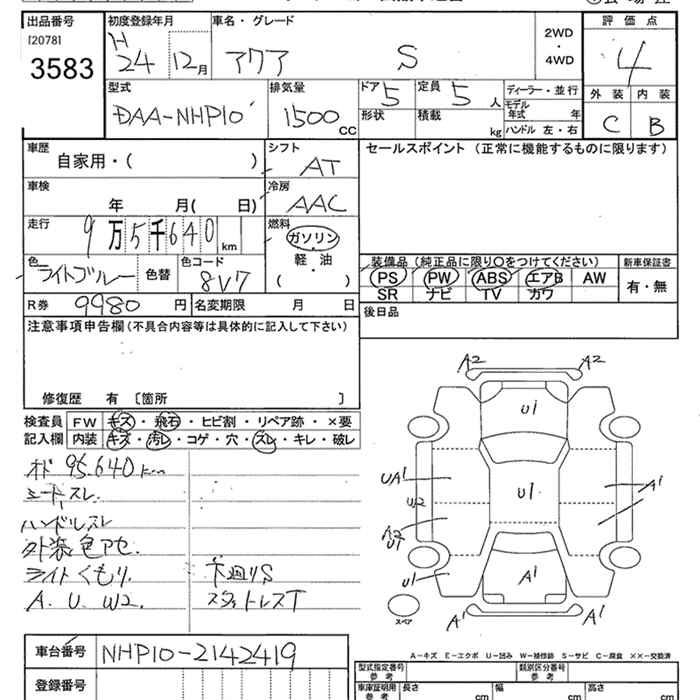 出品番号
[2078]
3583
初度登録年月
H
24 12月
車名・グレード
アクア S
2WD
・
4WD
評価点
4
型式
DAA-NHP10
排気量
1500
cc
ドア
5
定員
5 人
形状
積載
kg
ディーラー・並行
モデル
年式 年
ハンドル 左・右
外装 内装
C B
車歴
自家用・( )
シフト
AT
セールスポイント (正常に機能するものに限ります)
車検
年 月( 日)
冷房
AAC
走行
9万5千640
km
燃料
ガソリン
軽・油
( )
色
ライトブルー
色替
色コード
8V7
装備品 (純正品に限り○をつけてください)
PS PW ABS エアB AW
SR ナビ TV カワ
新車保証書
有・無
R券
9980 円
名変期限 月 日
後日品
注意事項申告欄 (不具合内容等は具体的に記入して下さい)
修復歴 有 [箇所 ]
検査員
記入欄
FW キズ・飛石・ヒビ割・リペア跡・×要
内装 キズ・汚レ・コゲ・穴・スレ・キレ・破レ
オド 95.640km
シートスレ
ハンドルスレ
外装色アセ.
ライトくもり. 下廻りS
A. U. W2. スタットレスT
A2 A2
U1
UA1
U1
A1
W2
A2
U1
U1
A1
A1 A1
スペア
車台番号
NHP10-2142419
登録番号
A-キズ E-エクボ U-凹み W-補修跡 S-サビ C-腐食 ××-交換済
型式指定番号
参考
類別区分番号
参考
車庫証明用
参考
長さ cm
幅 cm
高さ cm